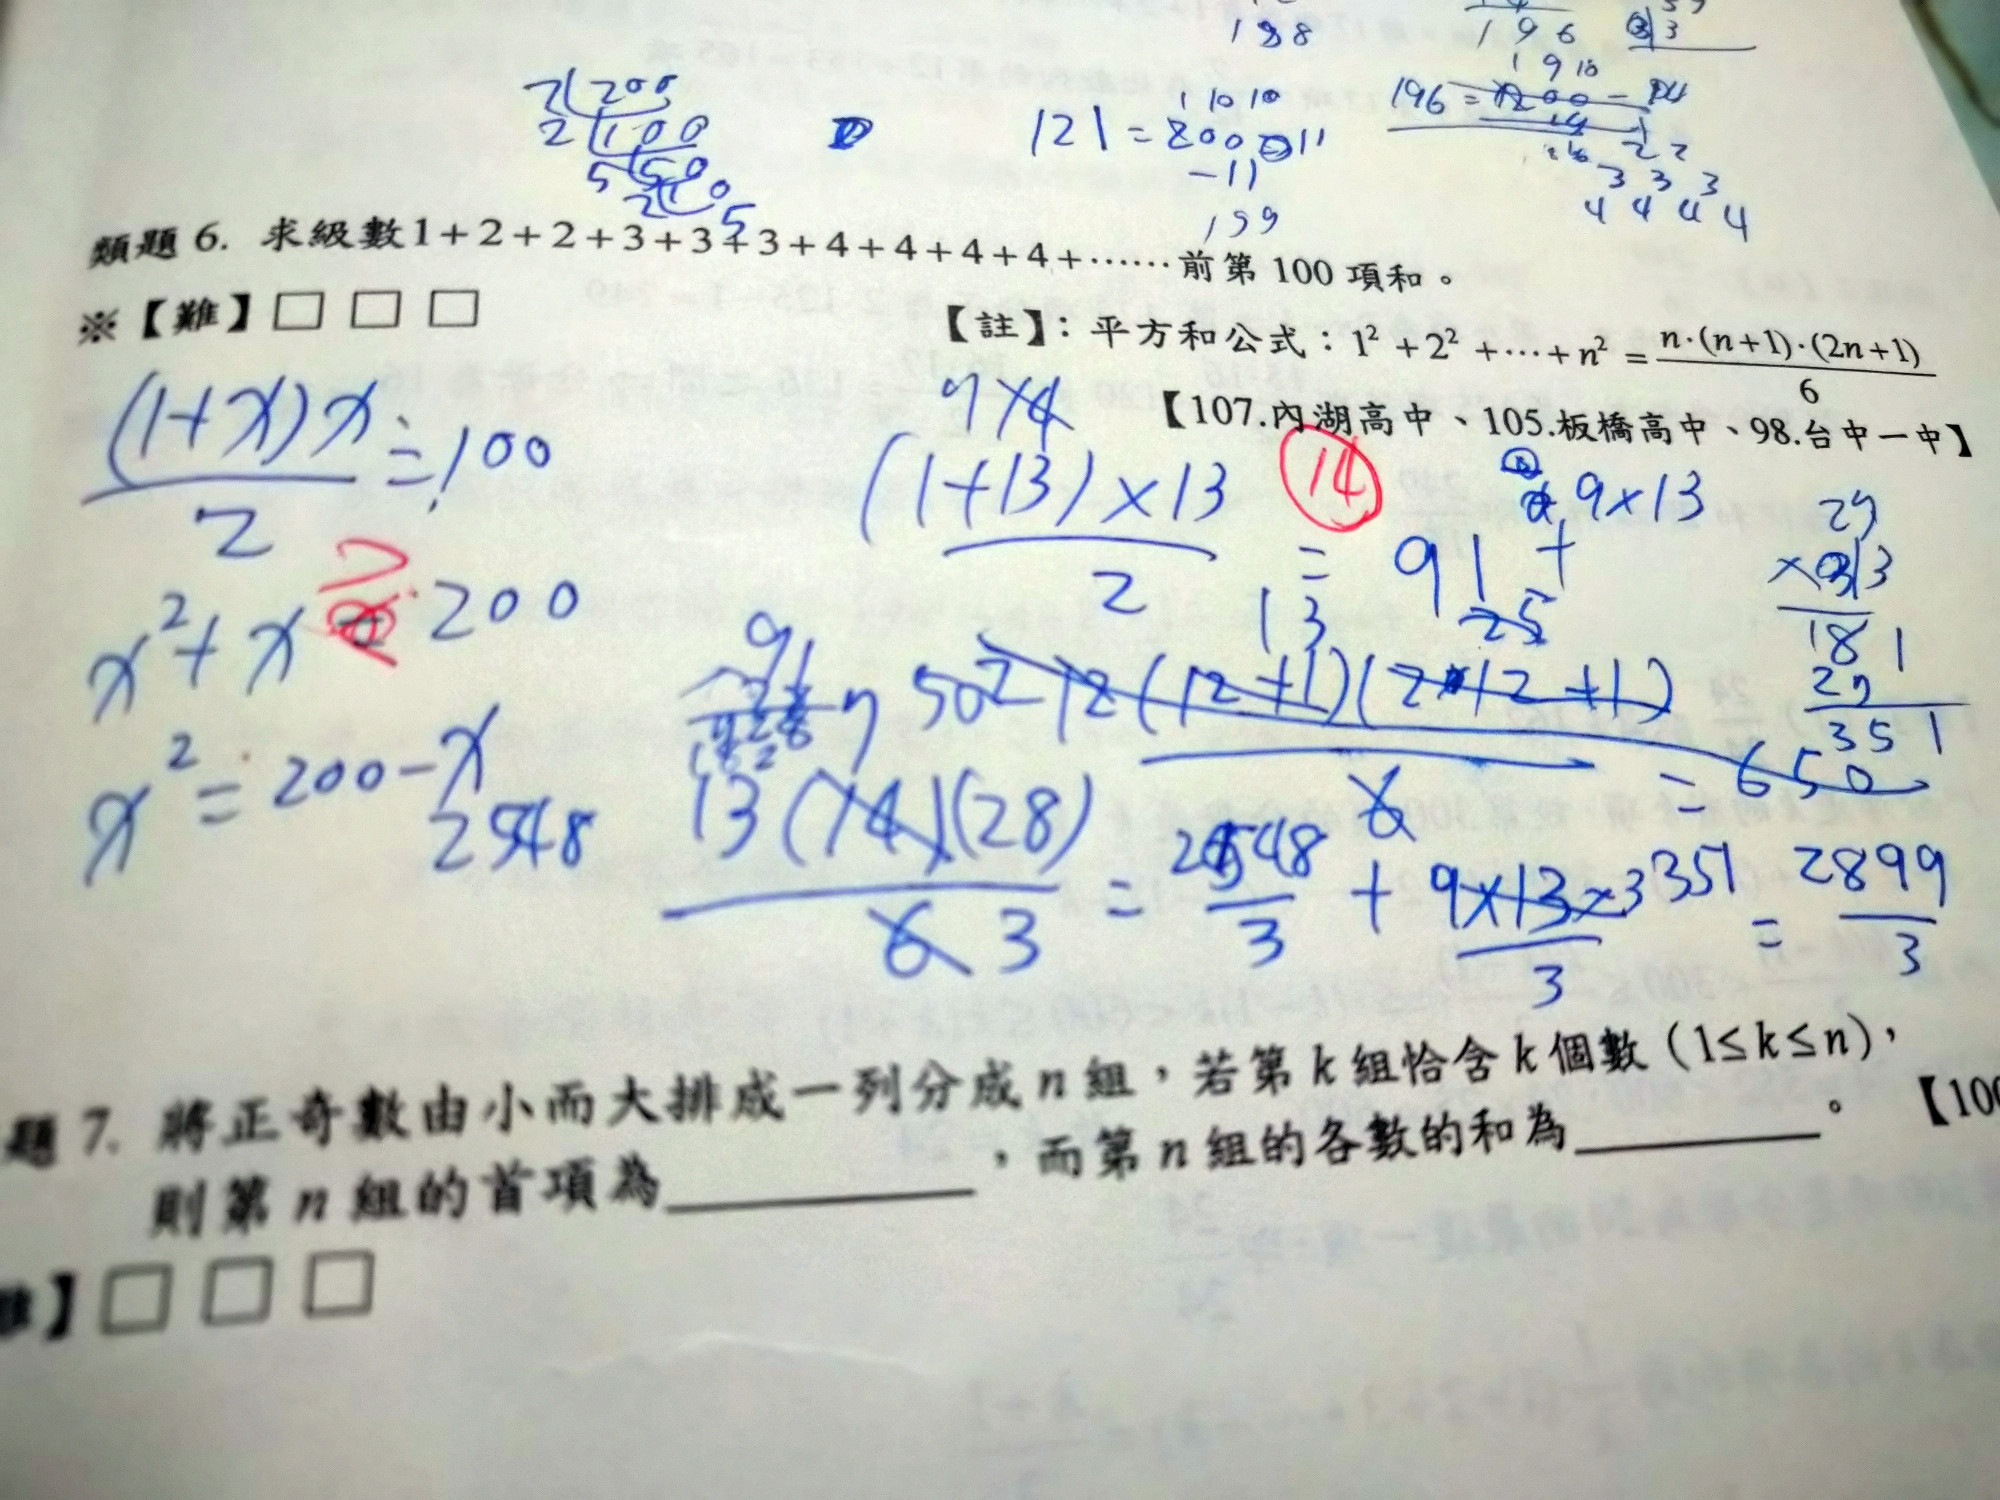 188
196
33
2 200
2 100
5 50
2 10
5
1 10 10
121 = 200 - 11
- 11
199
1 9 10
196 = 200 - 4
2 2
3 3 3
4 4 4 4
類題 6. 求級數1+2+2+3+3+3+4+4+4+4+……前第 100 項和。
※【難】□ □ □
【註】：平方和公式：1² + 2² + ⋯ + n² = n·(n+1)·(2n+1) / 6
【107.內湖高中、105.板橋高中、98.台中一中】
(1+x)x / 2 = 100
x² + x 200
x² = 200 - x
2548
(1+13)×13 / 2 = 91 +
14
9×13
13
25
12(12+1)(2·12+1) / 6 = 650
91
13(14)(28) / 6 3 = 2548 / 3 + 9×13×3 / 3 351 = 2899 / 3
351
題 7. 將正奇數由小而大排成一列分成 n 組，若第 k 組恰含 k 個數（1≤k≤n），
則第 n 組的首項為＿＿＿＿，而第 n 組的各數的和為＿＿＿＿。 【100
】□ □ □